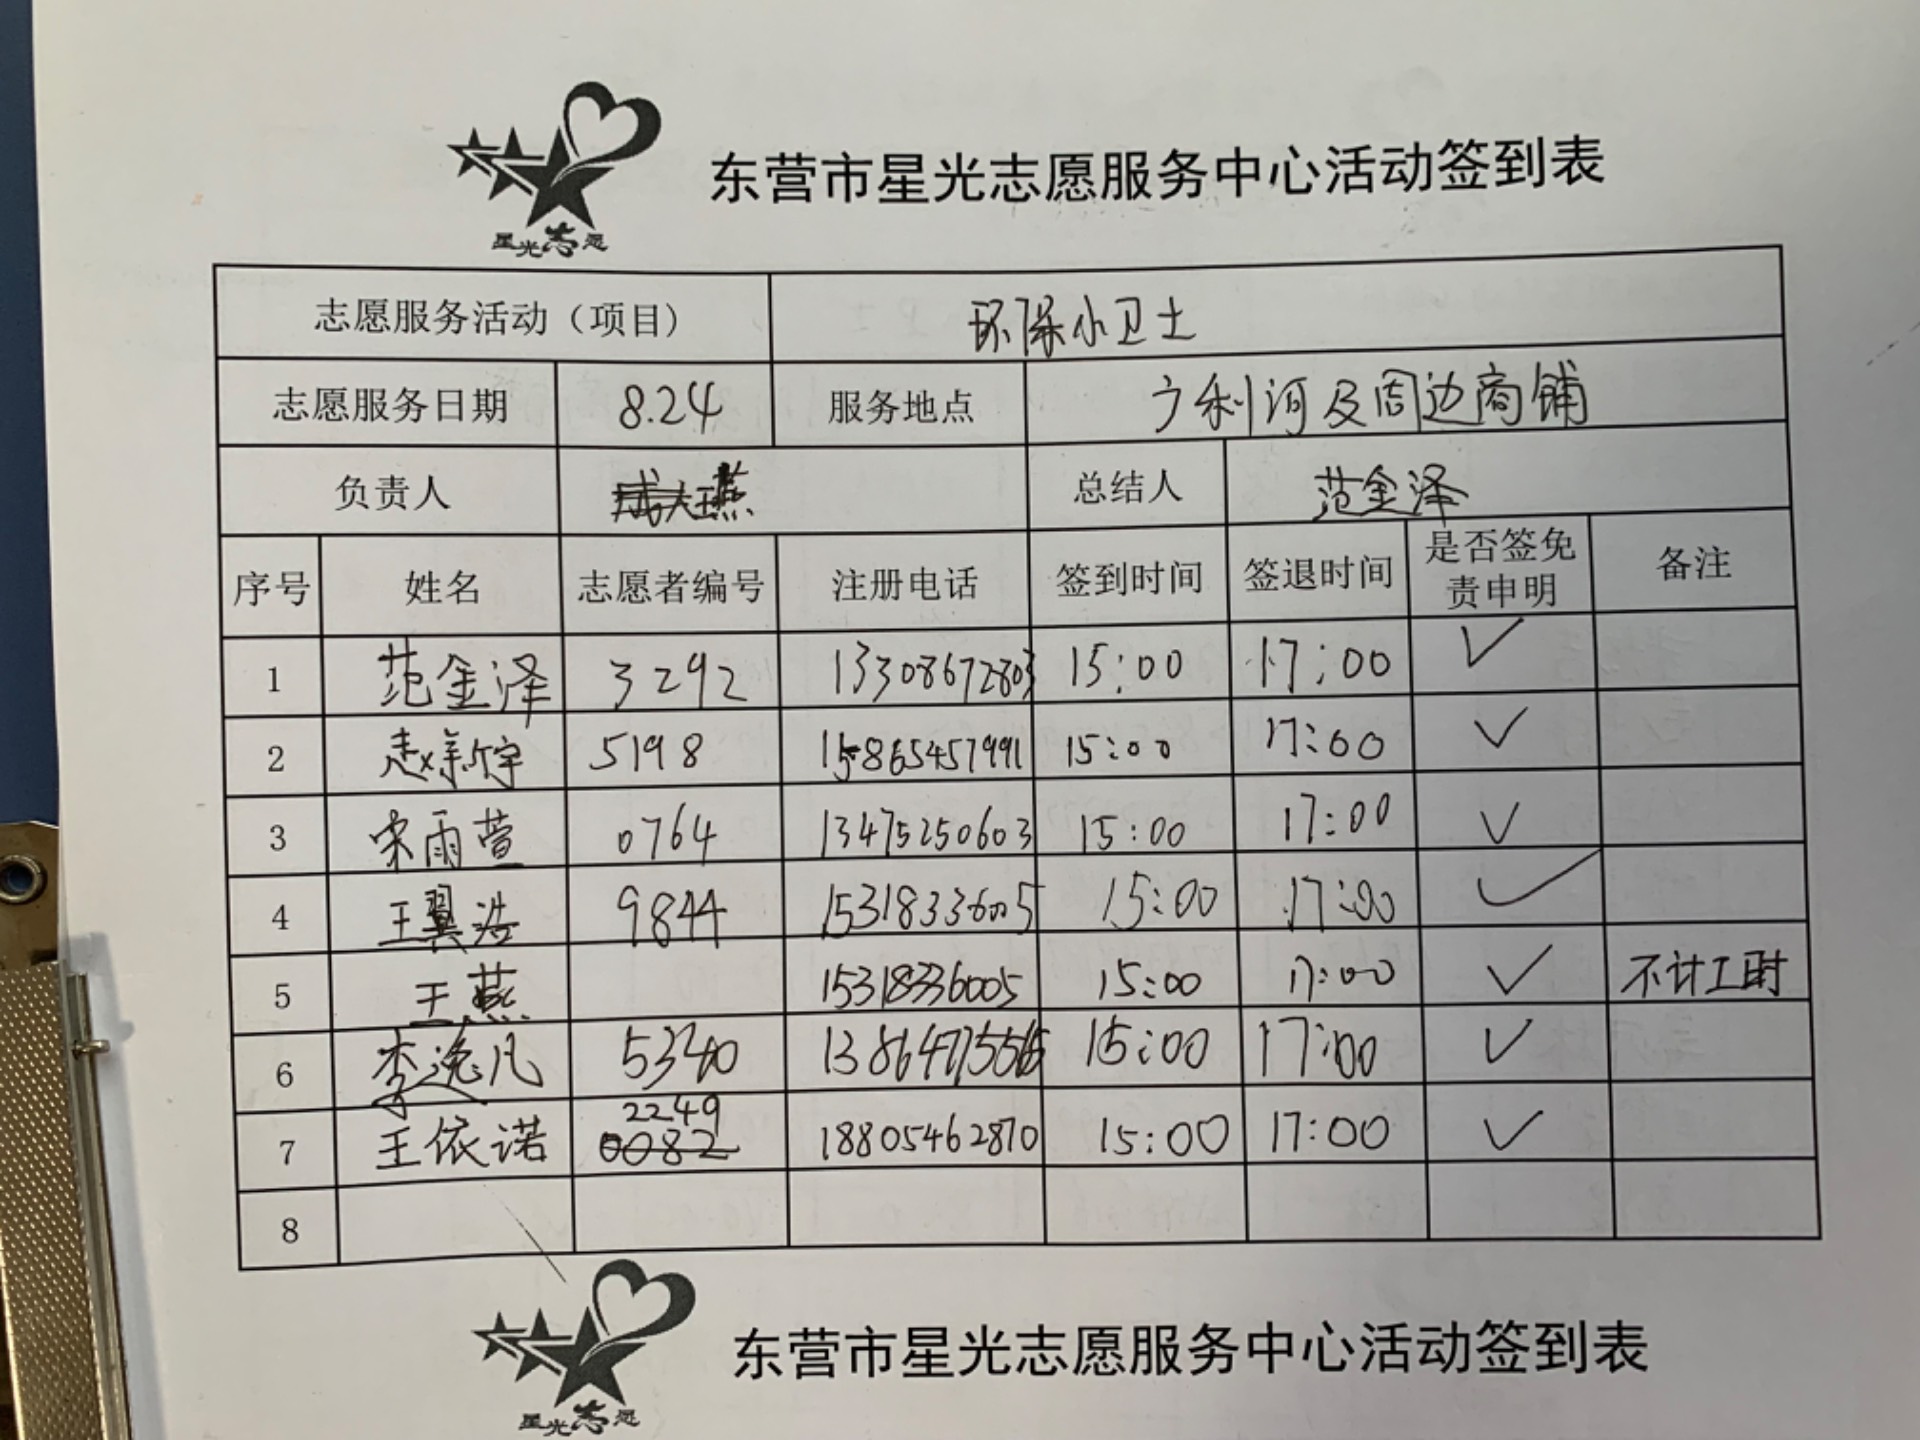 东营市星光志愿服务中心活动签到表
星光志愿
志愿服务活动（项目） 环保小卫士
志愿服务日期 8.24 服务地点 广利河及周边商铺
负责人 王燕 总结人 范金泽
序号 姓名 志愿者编号 注册电话 签到时间 签退时间 是否签免责申明 备注
1 范金泽 3292 13308672803 15:00 17:00 ✓
2 赵 5198 15865457991 15:00 17:00 ✓
3 宋雨萱 0764 13475250603 15:00 17:00 ✓
4 王翼浩 9844 15318336005 15:00 17:00 ✓
5 王燕 15318336005 15:00 17:00 ✓ 不计工时
6 李逸凡 5340 15:00 17:00 ✓
2249
7 王依诺 0082 18805462870 15:00 17:00 ✓
8
东营市星光志愿服务中心活动签到表
星光志愿